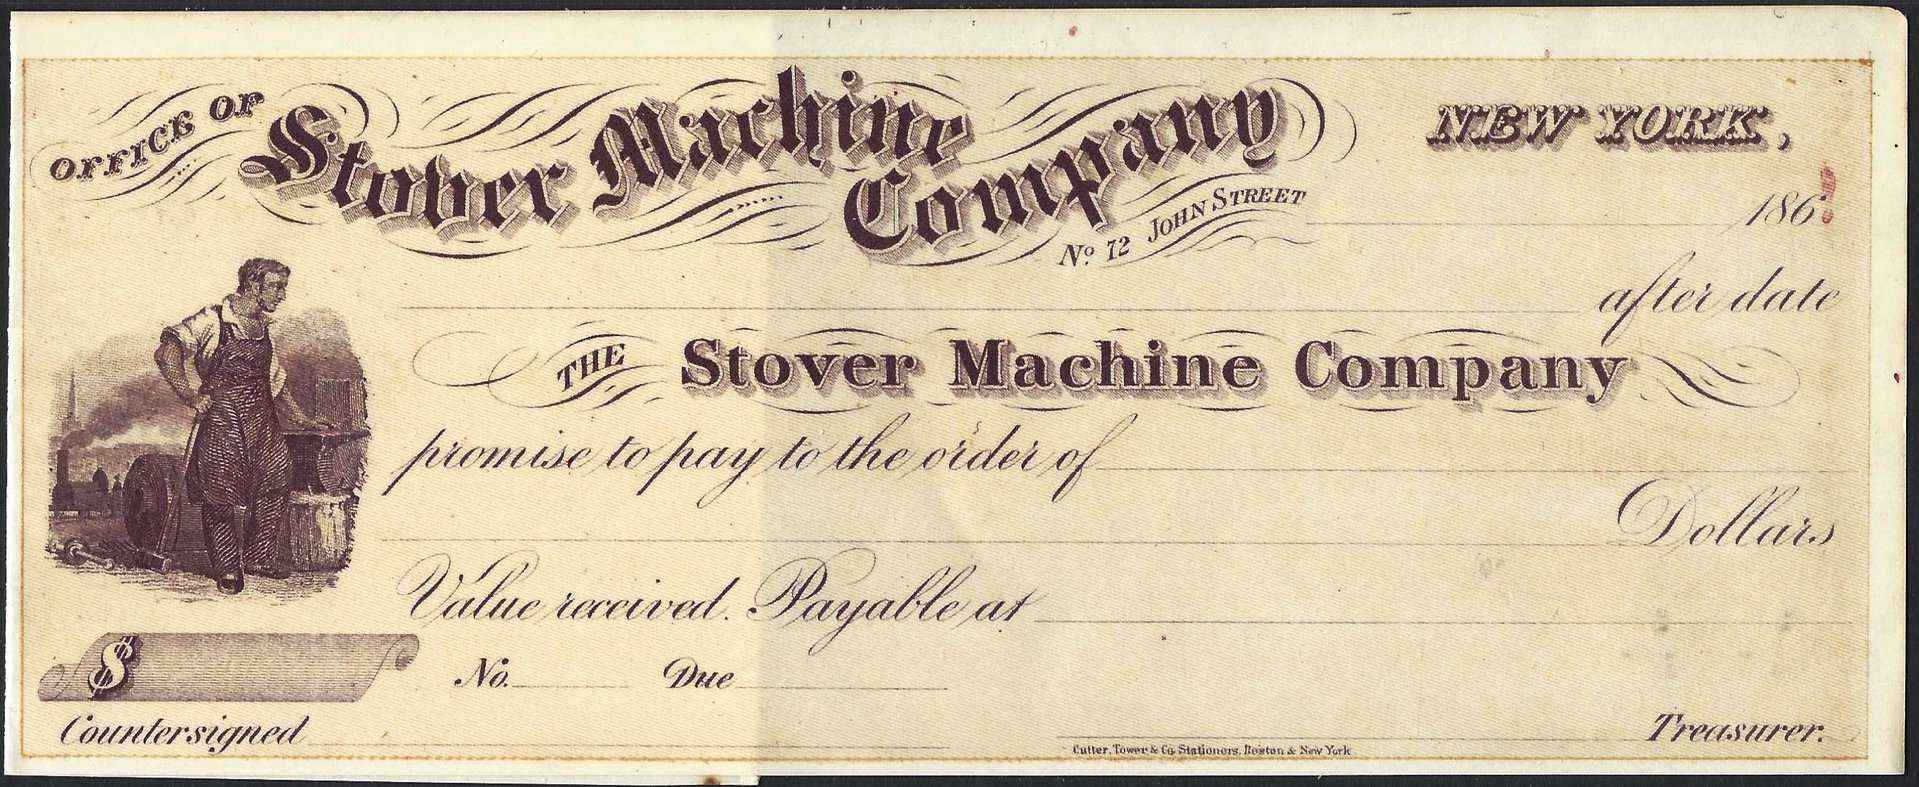 OFFICE OF Stover Machine Company
No. 12 JOHN STREET
NEW YORK,
186
after date
THE Stover Machine Company
promise to pay to the order of
Dollars
Value received. Payable at
$
No. Due
Countersigned
Treasurer.
Cutter, Tower & Co. Stationers, Boston & New York